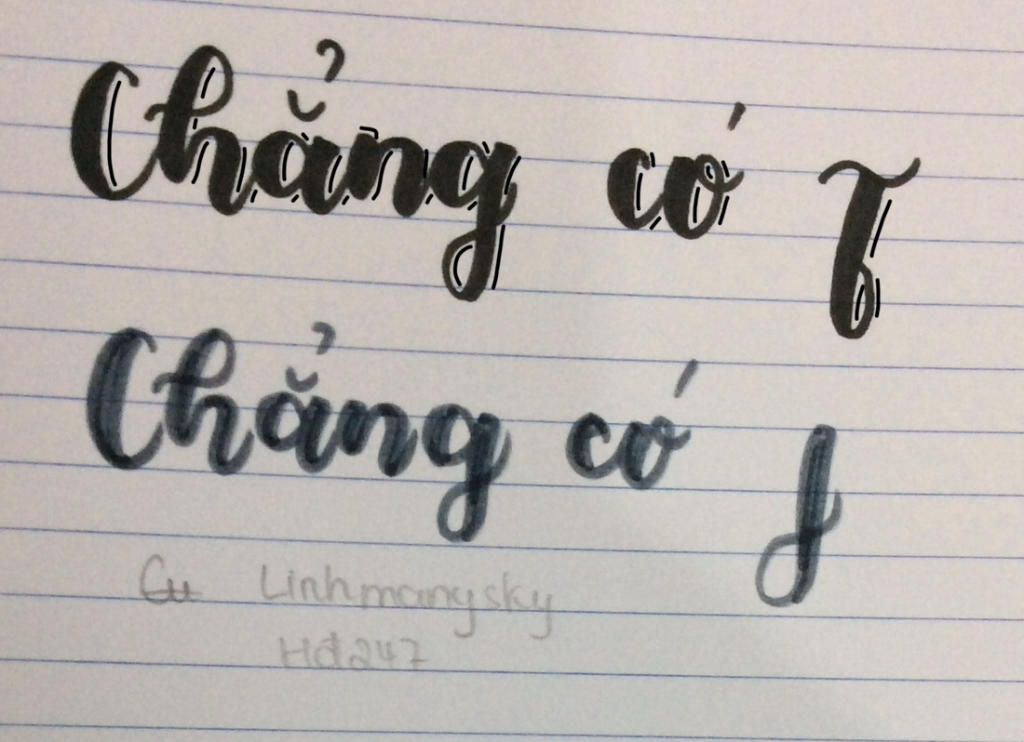 Chẳng có
Chẳng có
Linhmangsky
Hđ247